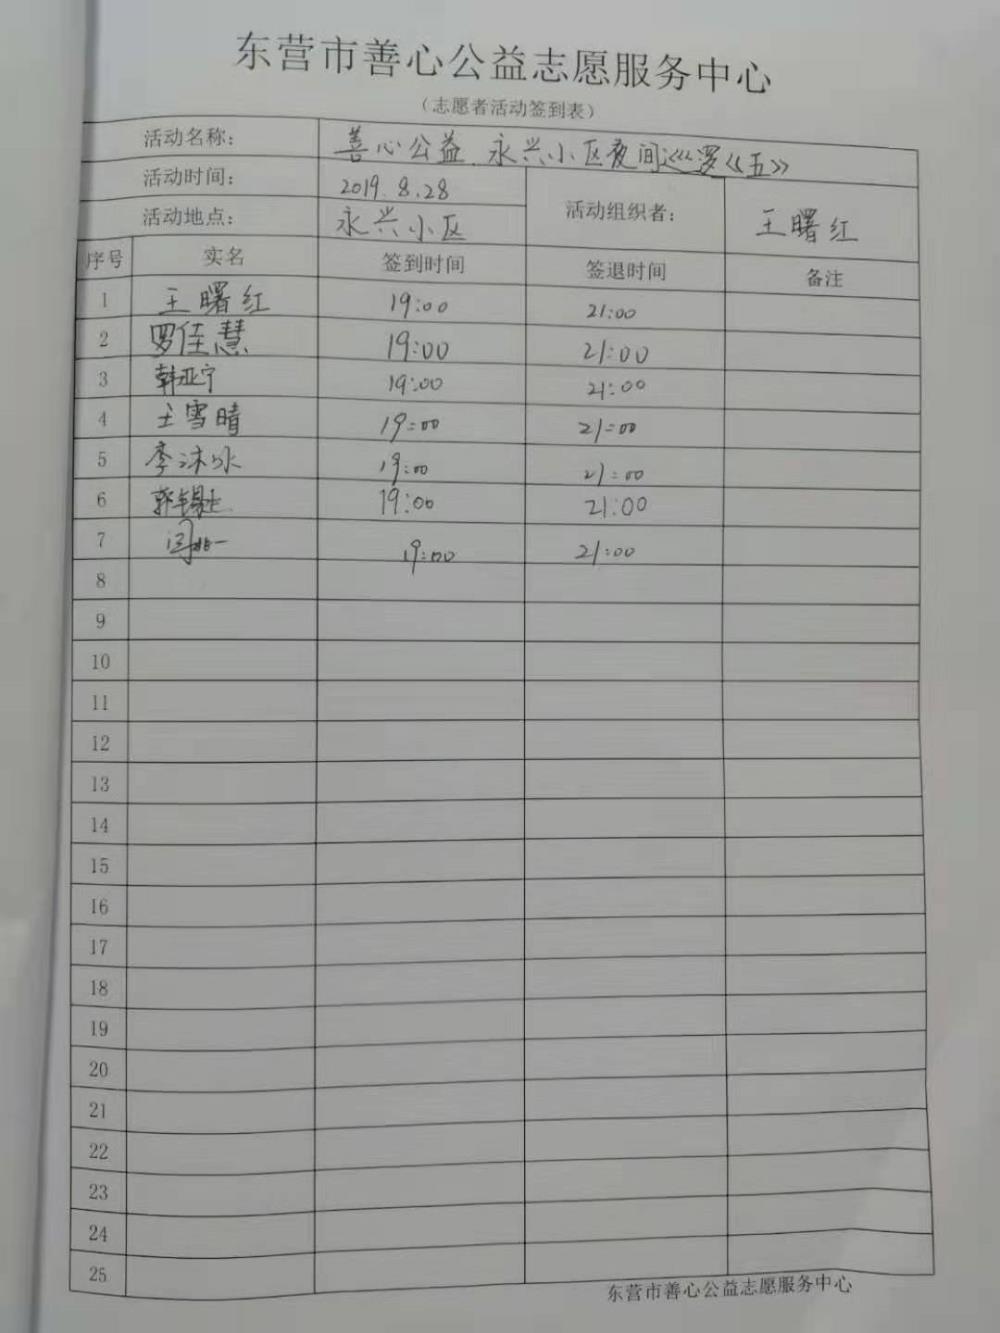 东营市善心公益志愿服务中心
（志愿者活动签到表）
活动名称： 善心公益 永兴小区夜间巡逻《五》
活动时间： 2019.8.28 活动组织者： 王曙红
活动地点： 永兴小区
序号 实名 签到时间 签退时间 备注
1 王曙红 19:00 21:00
2 罗佳慧 19:00 21:00
3 韩亚宁 19:00 21:00
4 王雪晴 19:00 21:00
5 李沐冰 19:00 21:00
6 19:00 21:00
7 19:00 21:00
8
9
10
11
12
13
14
15
16
17
18
19
20
21
22
23
24
25
东营市善心公益志愿服务中心